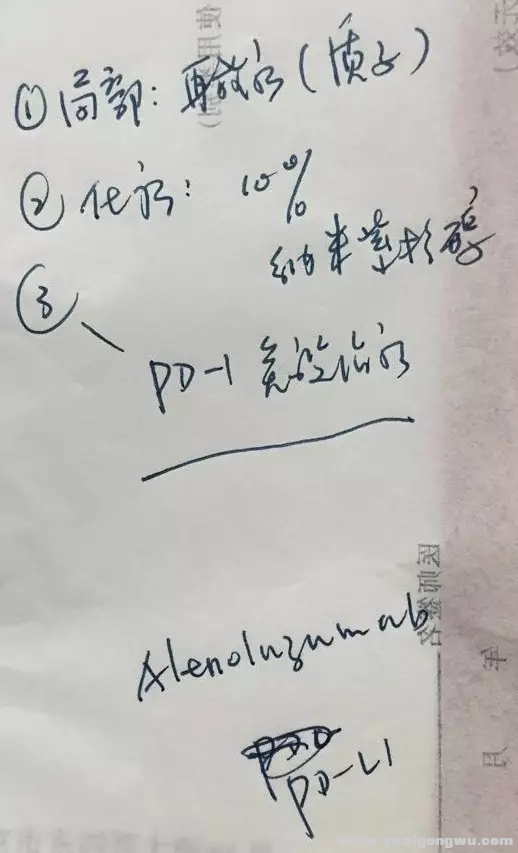 ① 局部: 再放疗 (质子)
② 化疗: 10%
纳米紫杉醇
③
PD-1 免疫治疗
Atenoluzumab
PD-L1
www.yuaigongwu.com